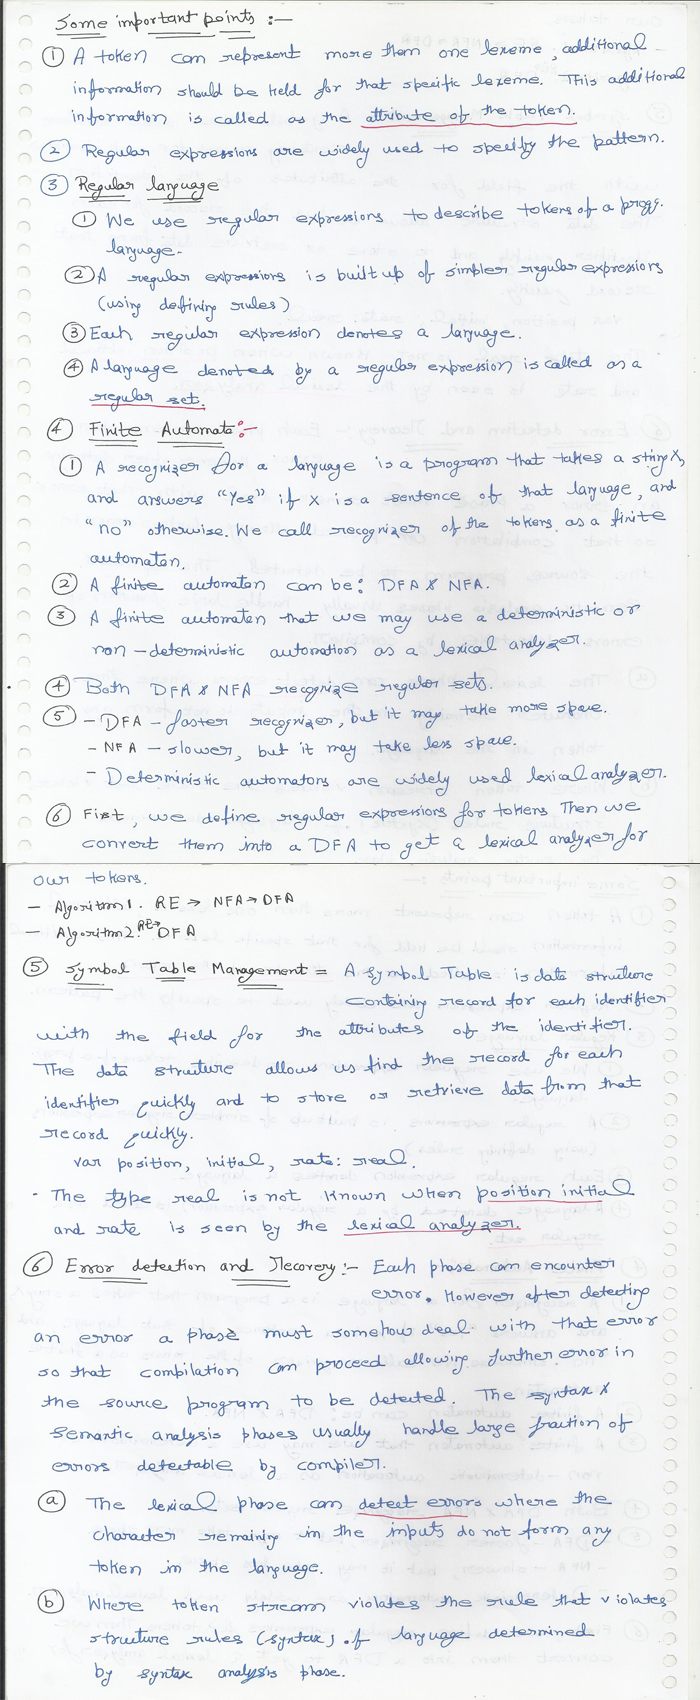 Some important points :-
① A token can represent more then one lexeme, additional
information should be held for that specific lexeme. This additional
information is called as the attribute of the token.
② Regular expressions are widely used to specify the pattern.
③ Regular language
① We use regular expressions to describe tokens of a progg.
language.
② A regular expressions is built up of simpler regular expressions
(using defining rules)
③ Each regular expression denotes a language.
④ A language denoted by a regular expression is called as a
regular set.
④ Finite Automata :-
① A recognizer for a language is a program that takes a string X,
and answers "Yes" if X is a sentence of that language, and
"no" otherwise. We call recognizer of the tokens, as a finite
automaton.
② A finite automaton can be: DFA & NFA.
③ A finite automaton that we may use a deterministic or
non-deterministic automation as a lexical analyzer.
④ Both DFA & NFA recognize regular sets.
⑤ - DFA - faster recognizer, but it may take more space.
- NFA - slower, but it may take less space.
- Deterministic automatons are widely used lexical analyzer.
⑥ First, we define regular expressions for tokens Then we
convert them into a DFA to get a lexical analyzer for
our tokens.
- Algorithm1. RE → NFA → DFA
- Algorithm2. RE → DFA
⑤ Symbol Table Management = A Symbol Table is data structure
containing record for each identifier
with the field for the attributes of the identifier.
The data structure allows us find the record for each
identifier quickly and to store or retrieve data from that
record quickly.
var position, initial, rate: real.
- The type real is not known when position initial
and rate is seen by the lexical analyzer.
⑥ Error detection and Recovery :- Each phase can encounter
error. However after detecting
an error a phase must somehow deal with that error
so that compilation can proceed allowing further error in
the source program to be detected. The syntax &
semantic analysis phases usually handle large fraction of
errors detectable by compiler.
ⓐ The lexical phase can detect errors where the
character remaining in the inputs do not form any
token in the language.
ⓑ Where token stream violates the rule that violates
structure rules (syntax) of language determined
by syntax analysis phase.